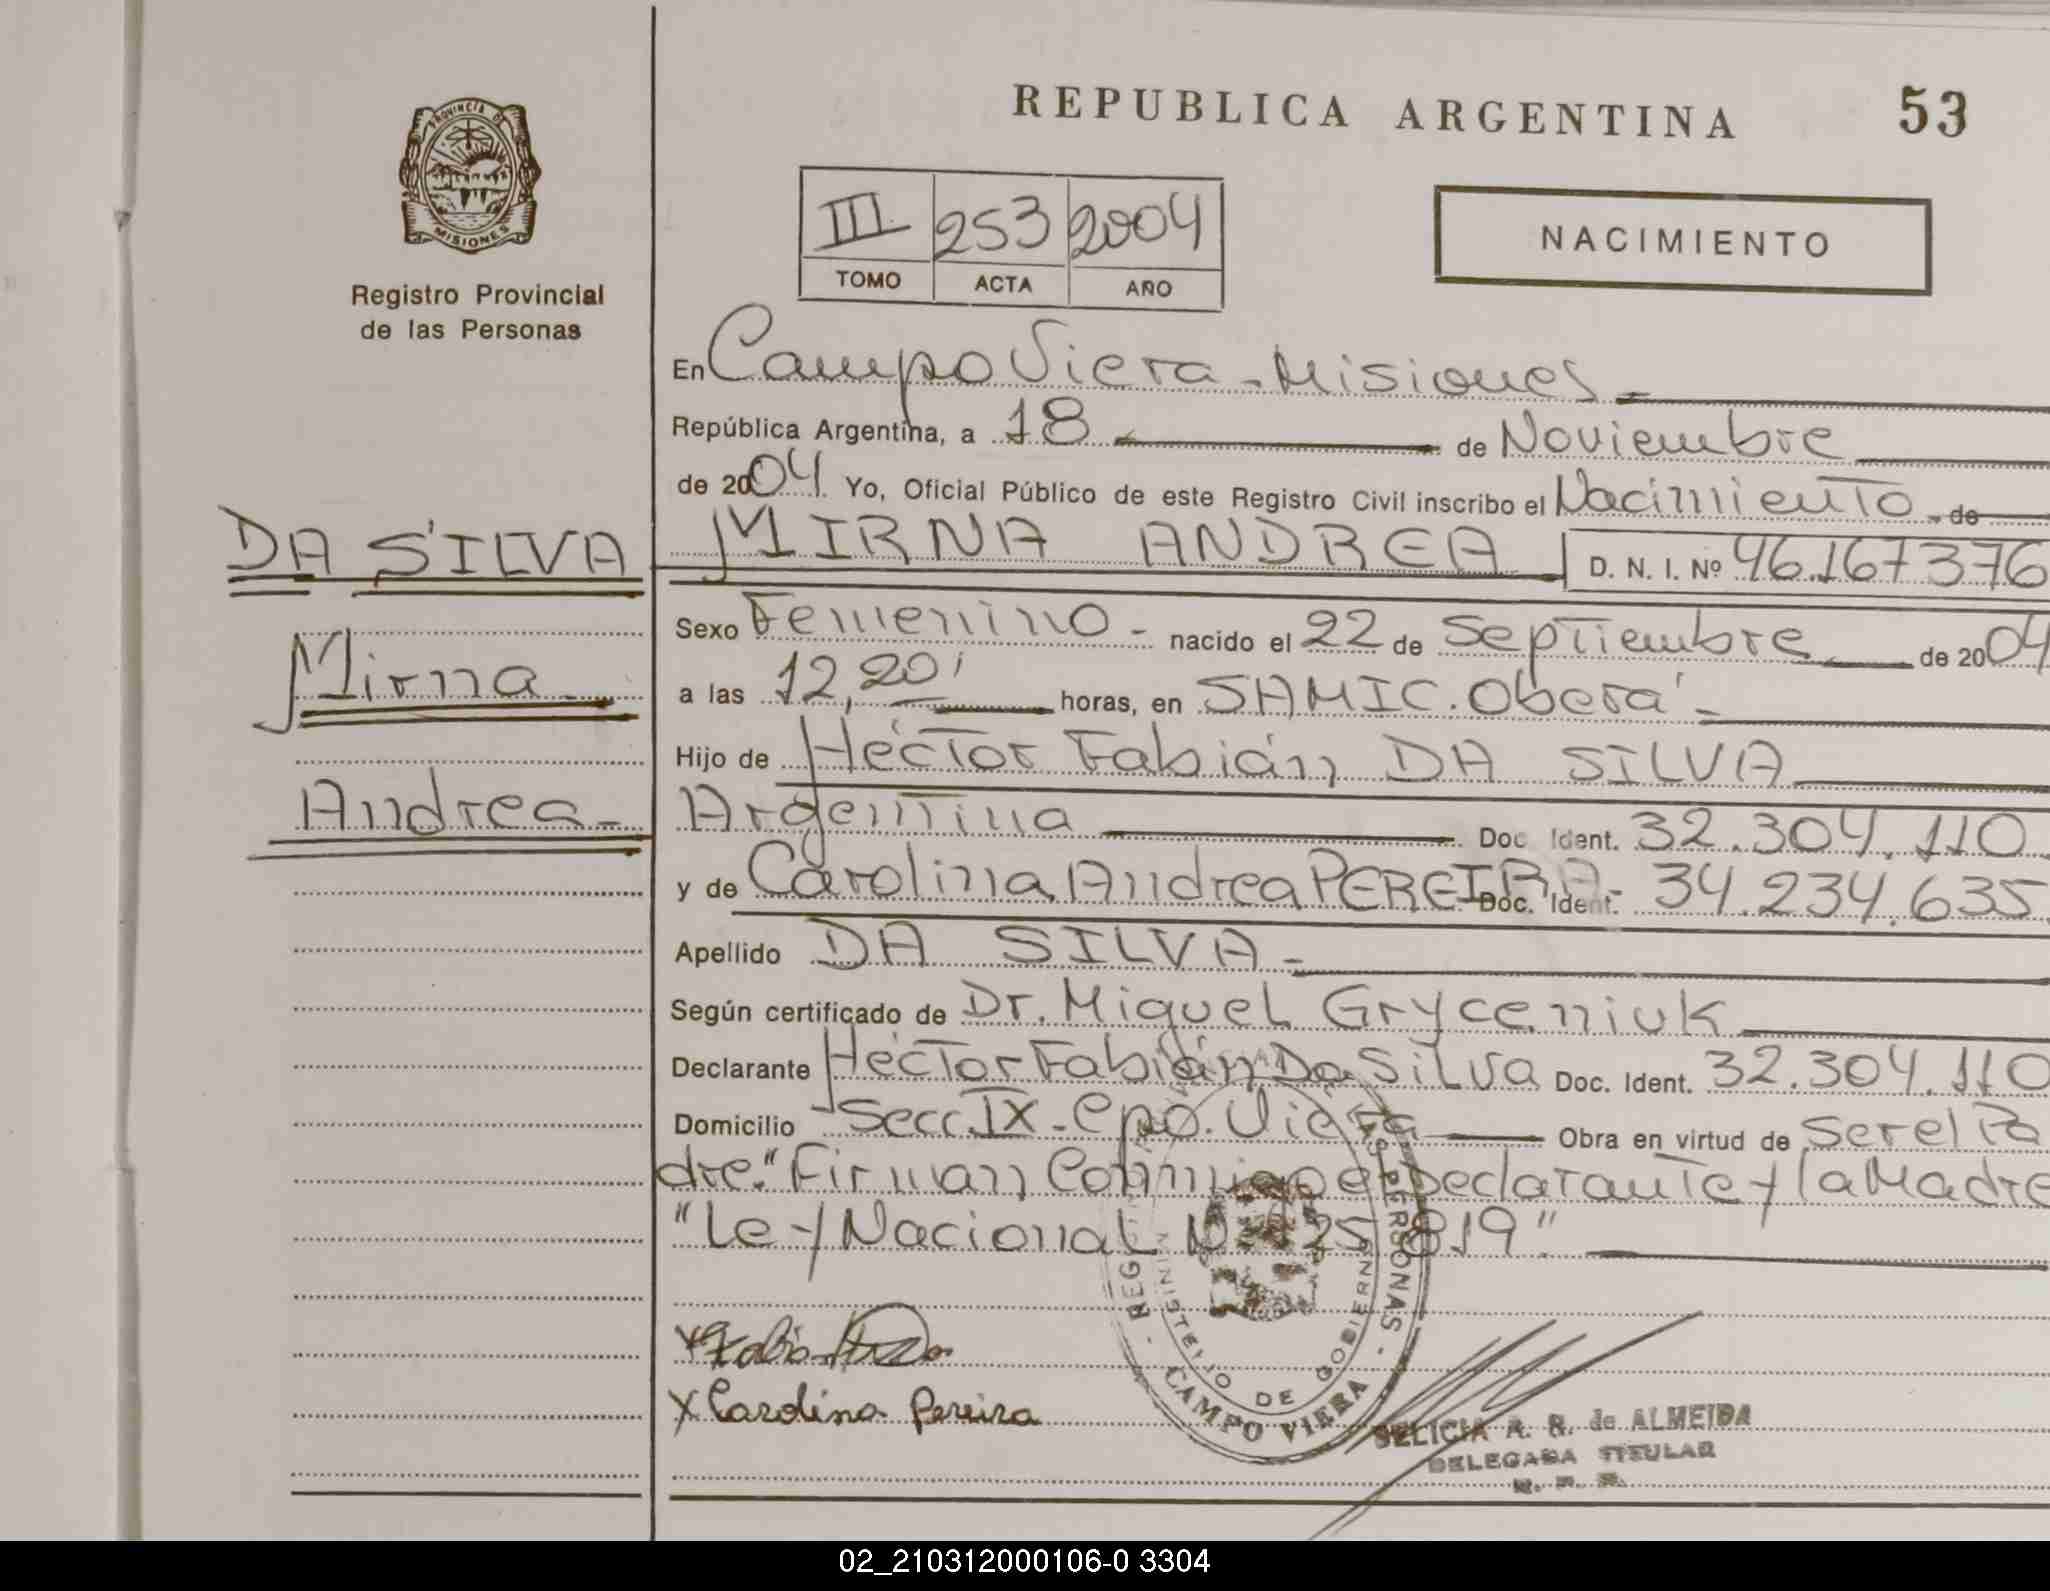 PROVINCIA DE
MISIONES
Registro Provincial
de las Personas
REPUBLICA ARGENTINA 53
III 253 2004
TOMO ACTA AÑO
NACIMIENTO
En Campo Viera - Misiones -
República Argentina, a 18 de Noviembre
de 2004 Yo, Oficial Público de este Registro Civil inscribo el Nacimiento - de
DA SILVA MIRNA ANDREA D. N. I. Nº 46.167376
Sexo Femenino - nacido el 22 de Septiembre de 2004
Mirna - a las 12,20' horas, en SAMIC. Oberá -
Hijo de Héctor Fabián DA SILVA
Andrea - Argentina Doc. Ident. 32.304.110
y de Carolina Andrea PEREIRA - Doc. Ident. 34.234.635
Apellido DA SILVA -
Según certificado de Dr. Miguel Gryceniuk
Declarante Héctor Fabián Da Silva Doc. Ident. 32.304.110
Domicilio Secc. IX - Cpo. Viera Obra en virtud de Ser el Pa
dre." Firman Conmigo el Declarante y la Madre
"Ley Nacional Nº 25 819".
X Carolina Pereira
PERSONAS
MINISTERIO DE GOBIERNO
- CAMPO VIERA -
A. R. de ALMEIDA
DELEGADA TITULAR
02_210312000106-0 3304